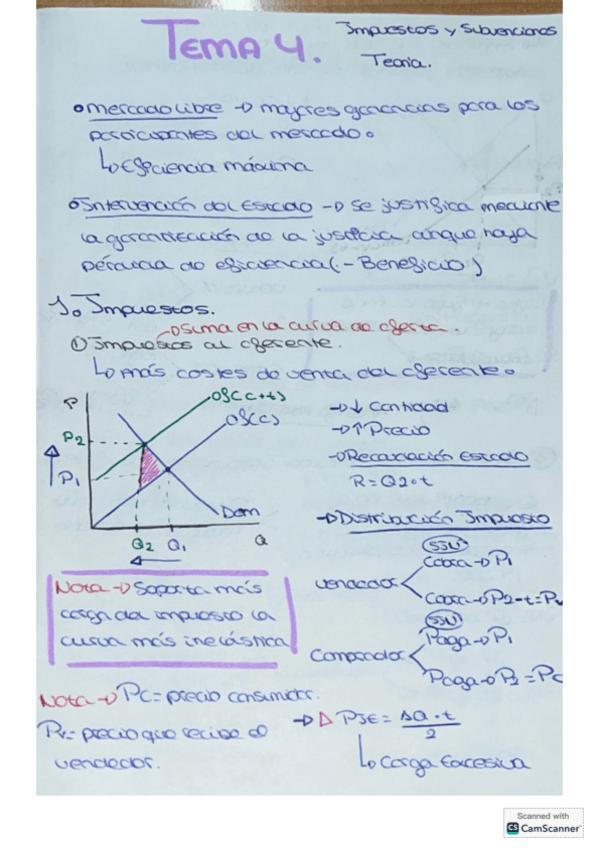 TEMA 4.
Impuestos y Subvenciones
Teoria.
• mercado libre → mayores ganancias para los
participantes del mercado.
↳ Eficiencia máxima
• Intervención del Estado → se justifica mediante
la garantización de la justicia aunque haya
pérdida de eficiencia (- Beneficio)
1. Impuestos.
→ Suma en la curva de oferta.
① Impuestos al oferente.
↳ más costes de venta del oferente.
P
Of(c+t)
Of(c)
P2
P1
Dem
Q2 Q1 Q
→ ↓ Cantidad
→ ↑ Precio
→ Recaudación Estado
R = Q2·t
→ Distribución Impuesto
SSU
Cobra → P1
vendedor
Cobra → P2-t = Pv
SSU
Paga → P1
Comprador
Paga → P2 = PC
Nota → Soporta más
carga del impuesto la
curva más inelástica
Nota → PC = precio consumidor.
Pv = precio que recibe el
vendedor.
→ Δ PSE = ΔQ·t
2
↳ Carga Excesiva
Scanned with
CS CamScanner